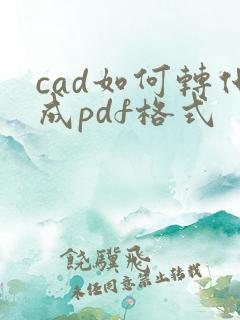 cad如何轉化
成pdf格式
饒驥飛
未經同意禁止轉載